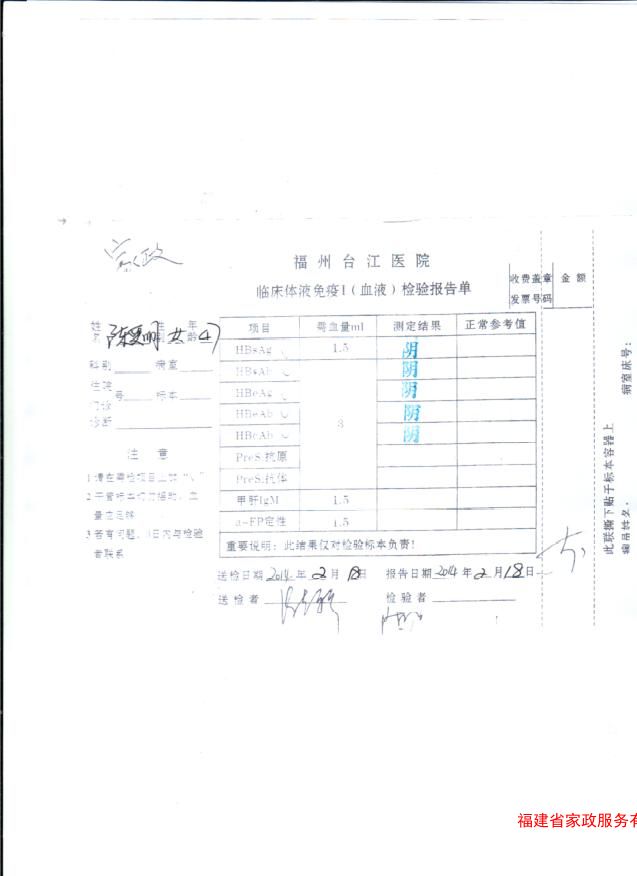 家政
福州台江医院
临床体液免疫I（血液）检验报告单
收费盖章 金额
发票号码
姓名 性别 女 年龄 47
科别 病室
住院
门诊 号 标本
诊断
注意
1 请在需检项目上打“√”
血
量应足够
3 若有问题, 日内与检验
者联系
项目 需血量ml 测定结果 正常参考值
HBsAg 1.5 阴
HBsAb 阴
HBeAg 阴
HBeAb 3 阴
HBcAb 阴
PreS₁抗原
PreS₁抗体
甲肝IgM 1.5
α-FP定性 1.5
重要说明：此结果仅对检验标本负责！
送检日期 2014 年 2 月 18 日 报告日期 2014 年 2 月 18 日
送检者 检验者
此联撕下贴于标本容器上
病室床号：
病员姓名：
福建省家政服务有